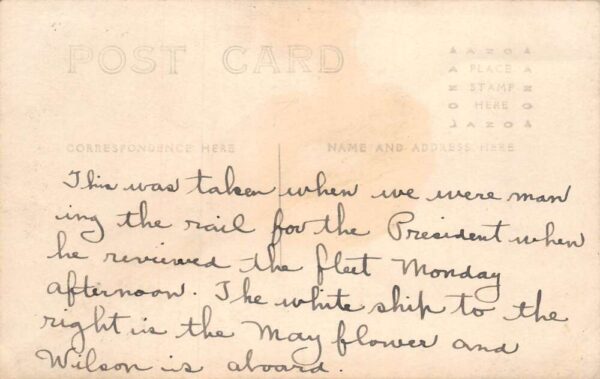 POST CARD
AZOA
PLACE
STAMP
HERE
AZOA
CORRESPONDENCE HERE
NAME AND ADDRESS HERE
This was taken when we were man
ing the rail for the President when
he reviewed the fleet Monday
afternoon. The white ship to the
right is the May flower and
Wilson is aboard.